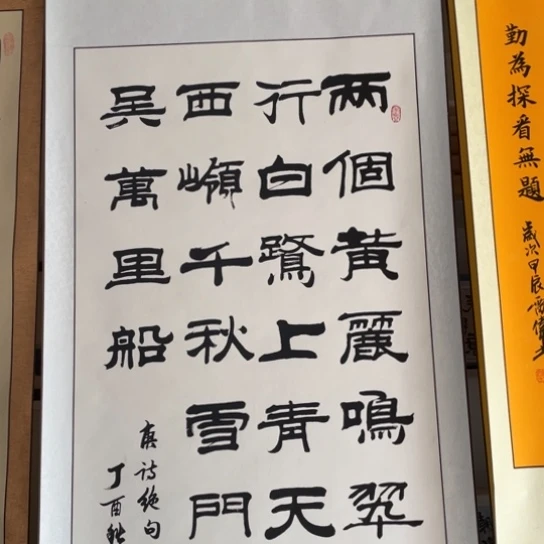 勤為探看無題
歲次甲辰
两個黄麗鳴翠
行白鷺上青天
西嶺千秋雪門
吴萬里船
唐诗絶句
丁酉秋